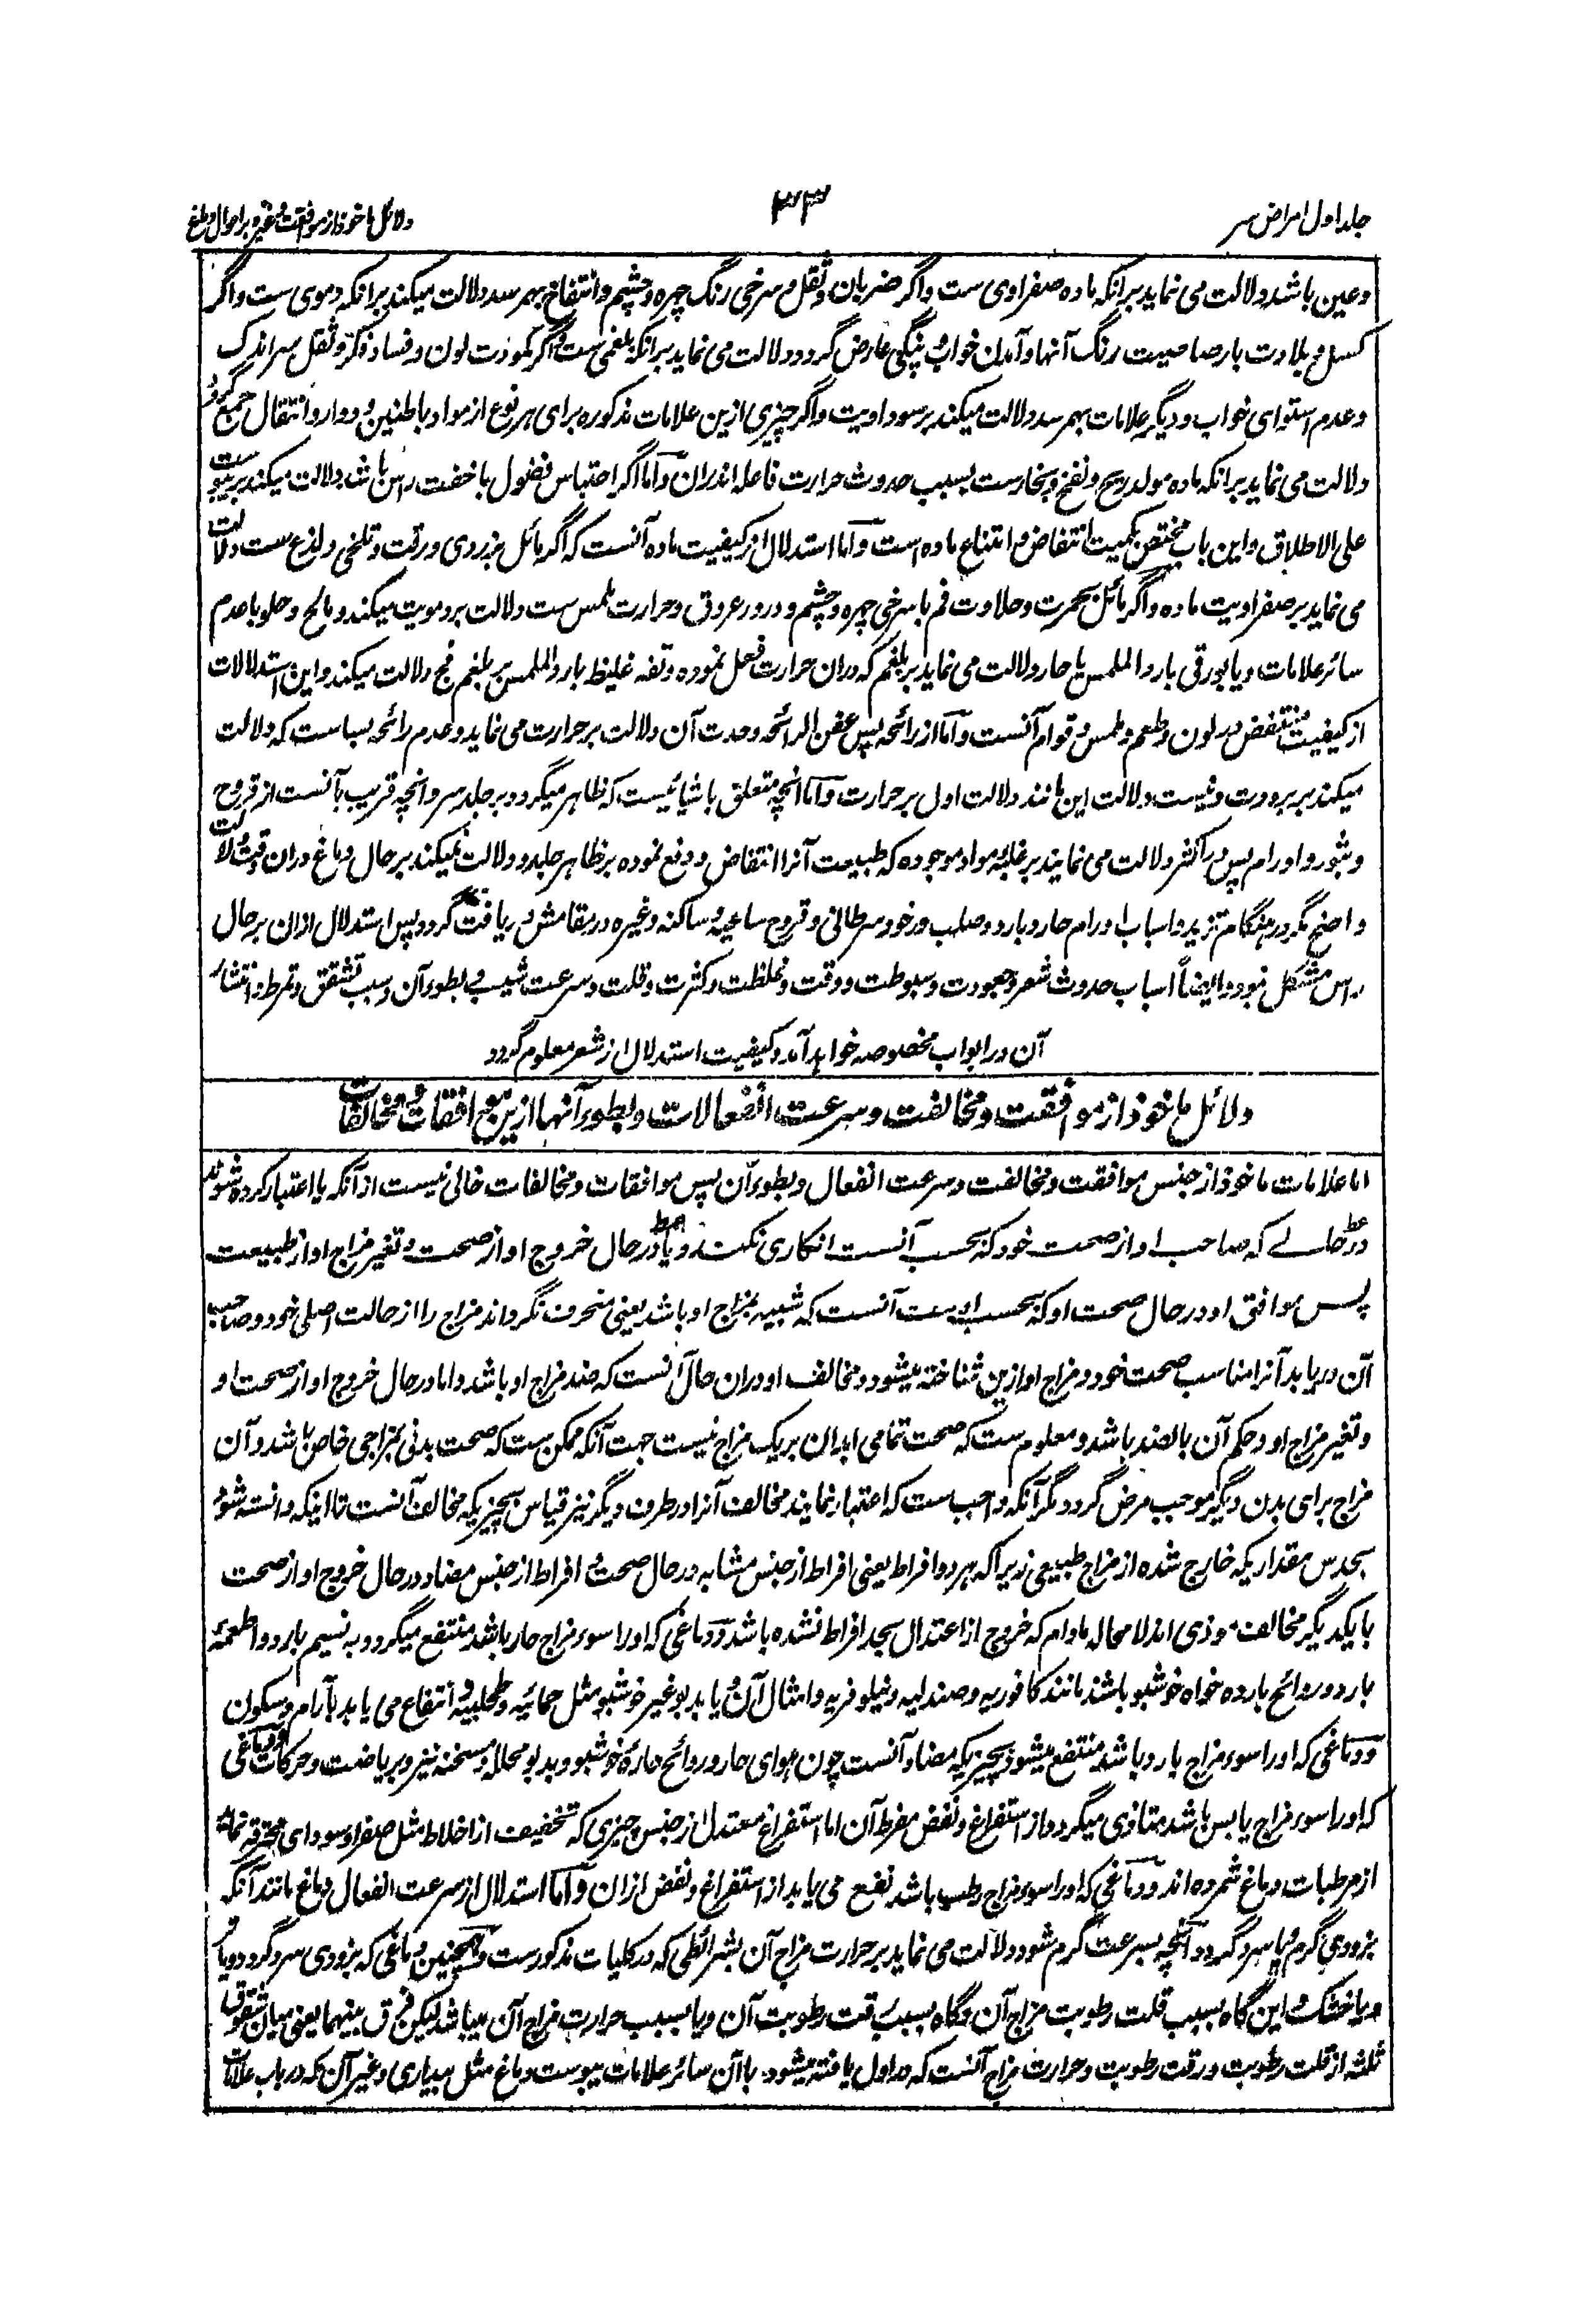 جلد اول امراض سر
۳۳
دلائل ماخوذ از موافقت وغیره بر احوال دماغ
وعین باشد دلالت می نماید برآنکه ماده صفراوی ست واگر ضربان وثقل وسرخی رنگ چهره وچشم وانتفاخ بهم رسد دلالت میکند برآنکه دموی ست واگر
کسل وبلادت بارصاصیت رنگ آنها وآمدن خواب وپینگی عارض گردد دلالت می نماید برآنکه بلغمی ست واگر کمودت لون وفساد فکر وثقل سر اندک
وعدم استوای خواب ودیگر علامات بهم رسد دلالت میکند بر سوداویت واگر چیزی ازین علامات مذکوره برای هر نوع از مواد باطنین ودوار وانتقال جمع گردد
دلالت می نماید برآنکه ماده مولد ریح ونفخ وبخارست بسبب حدوث حرارت فاعله اندران واما اگر احتباس فضول با خفت راس باشد دلالت میکند بر یبوست
علی الاطلاق واین باب مختص بکمیت انتفاض وامتناع ماده است واما استدلال از کیفیت ماده آنست که اگر مائل بزردی ورقت وتلخی ولذع ست دلالت
می نماید بر صفراویت ماده واگر مائل بحمرت وحلاوت فم با سرخی چهره وچشم ودرور عروق وحرارت ملمس ست دلالت بر دمویت میکند ومالح وحلو با عدم
سائر علامات ویا بورقی بارد الملمس یا حار دلالت می نماید بر بلغم که دران حرارت فعل نموده وتفه غلیظ بارد الملمس بر بلغم فج دلالت میکند واین استدلالات
از کیفیت منتفض در لون وطعم وملمس وقوام آنست واما از رائحه پس عفن الرائحه وحدت آن دلالت بر حرارت می نماید وعدم رائحه بساست که دلالت
میکند بر برودت ونیست دلالت این مانند دلالت اول بر حرارت واما آنچه متعلق باشیائیست که ظاهر میگردد بر جلد سر وآنچه قریب بآنست از قروح
وبثور واورام پس در اکثر دلالت می نمایند بر غلبه مواد موجوده که طبیعت آنرا انتفاض ودفع نموده بر ظاهر جلد ودلالت نمیکند بر حال دماغ دران وقت دلالت
واضح مگر در هنگام تزید واسباب اورام حار وبارد وصلب ورخو وسرطانی وقروح ساعیه وساکنه وغیره در مقامش دریافت گردد پس استدلال ازان بر حال
راس مشکل نبود وایضاً اسباب حدوث شعر وجعودت وسبوطت ودقت وغلظت وکثرت وقلت وسرعت شیب وبطوء آن وسبب تشقق وتمرط وانتشار
آن در ابواب مخصوصه خواهد آمد وکیفیت استدلال از شعر معلوم گردد
دلائل ماخوذ از موافقت ومخالفت وسرعت انفعالات وبطوء آنها ازین موافقات ومخالفات
اما علامات ماخوذ از جنس موافقت ومخالفت وسرعت انفعال وبطوء آن پس موافقات ومخالفات خالی نیست ازآنکه یا اعتبار کرده شوند
در حالے که صاحب او از صحت خود که بحسب آنست انکاری نکند ویا در حال خروج او از صحت وتغیر مزاج او از طبیعت
پس موافق او در حال صحت او که بحسب اوست آنست که شبیه بمزاج او باشد یعنی منحرف نگرداند مزاج را از حالت اصلی خود وصاحب
آن دریابد آنرا مناسب صحت خود ومزاج او ازین شناخته میشود ومخالف او دران حال آنست که ضد مزاج او باشد واما در حال خروج او از صحت او
وتغیر مزاج او وحکم آن بالضد باشد ومعلوم ست که صحت تمامی ابدان بر یک مزاج نیست جهت آنکه ممکن ست که صحت بدنی بمزاجی خاص باشد وآن
مزاج برای بدن دیگر موجب مرض گردد مگر آنکه واجب ست که اعتبار نمایند مخالف آنرا در طرف دیگر نیز قیاس بچیزیکه مخالف آنست تا اینکه دانسته شود
بحدس مقداریکه خارج شده از مزاج طبیعی زیراکه هر دو افراط یعنی افراط از جنس مشابه در حال صحت وافراط از جنس مضاد در حال خروج او از صحت
بایکدیگر مخالف موذی اند لامحاله مادام که خروج از اعتدال بحد افراط نشده باشد ودماغی که او را سوء مزاج حار باشد منتفع میگردد به نسیم بارد واطعمهٔ
بارد وروائح بارده خواه خوشبو باشند مانند کافوریه وصندلیه ونیلوفریه وامثال آن ویا بدبو غیر خوشبو مثل حمائیه وطحلبیه وانتفاع می یابد بآرام وسکون
ودماغی که او را سوء مزاج بارد باشد منتفع میشود بچیزیکه مضاد آنست چون هوای حار وروائح حارهٔ خوشبو وبدبو محلله ومسخنه نیز وبریاضت وحرکات ودماغی
که او را سوء مزاج یابس باشد متاذی میگردد از استفراغ ونفض مفرط آن اما استفراغ معتدل از جنس چیزی که تخفیف از اخلاط مثل صفرا وسودای محترقه نماید
از مرطبات دماغ شمرده اند ودماغی که او را سوء مزاج رطب باشد نفع می یابد از استفراغ ونفض ازان واما استدلال از سرعت انفعال دماغ مانند آنکه
بزودی گرم ویا سرد گردد آنچه بسرعت گرم شود دلالت می نماید بر حرارت مزاج آن بشرائطی که در کلیات مذکورست وهمچنین دماغی که بزودی سرد گردد ویا
ویا خشک واین گاه بسبب قلت رطوبت مزاج آن وگاه بسبب رقت رطوبت آن ویا بسبب حرارت مزاج آن میباشد لیکن فرق بینهما یعنی میان شقوق
ثلثه از قلت رطوبت ورقت رطوبت وحرارت مزاج آنست که در اول یافته میشود باآن سائر علامات یبوست دماغ مثل بیداری وغیر آن که در باب علامات